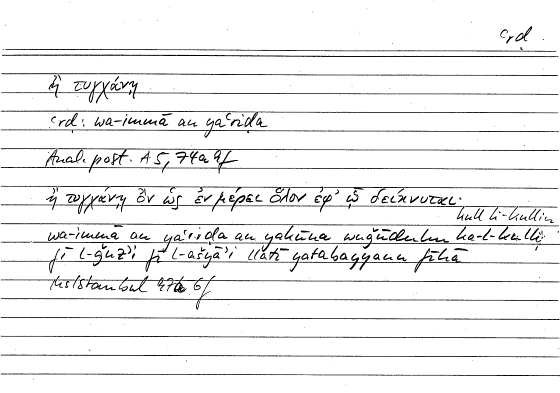 ʿrḍ
ἢ τυγχάνῃ
ʿrḍ: wa-immā an yaʿriḍa
Anal. post. A 5, 74a 9f
ἢ τυγχάνῃ ὂν ὡς ἐν μέρει ὅλον ἐφ᾽ ᾧ δείκνυται·
kull li-kullin
wa-immā an yaʿriḍa an yakūna wuǧūduhu ka-l-kulli
fī l-ǧuzʾi fī l-ašyāʾi llatī yatabayyanu fīhā
Ms Istanbul 6f